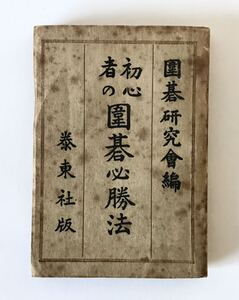 圍碁研究會編
初心者の圍碁必勝法
泰東社版